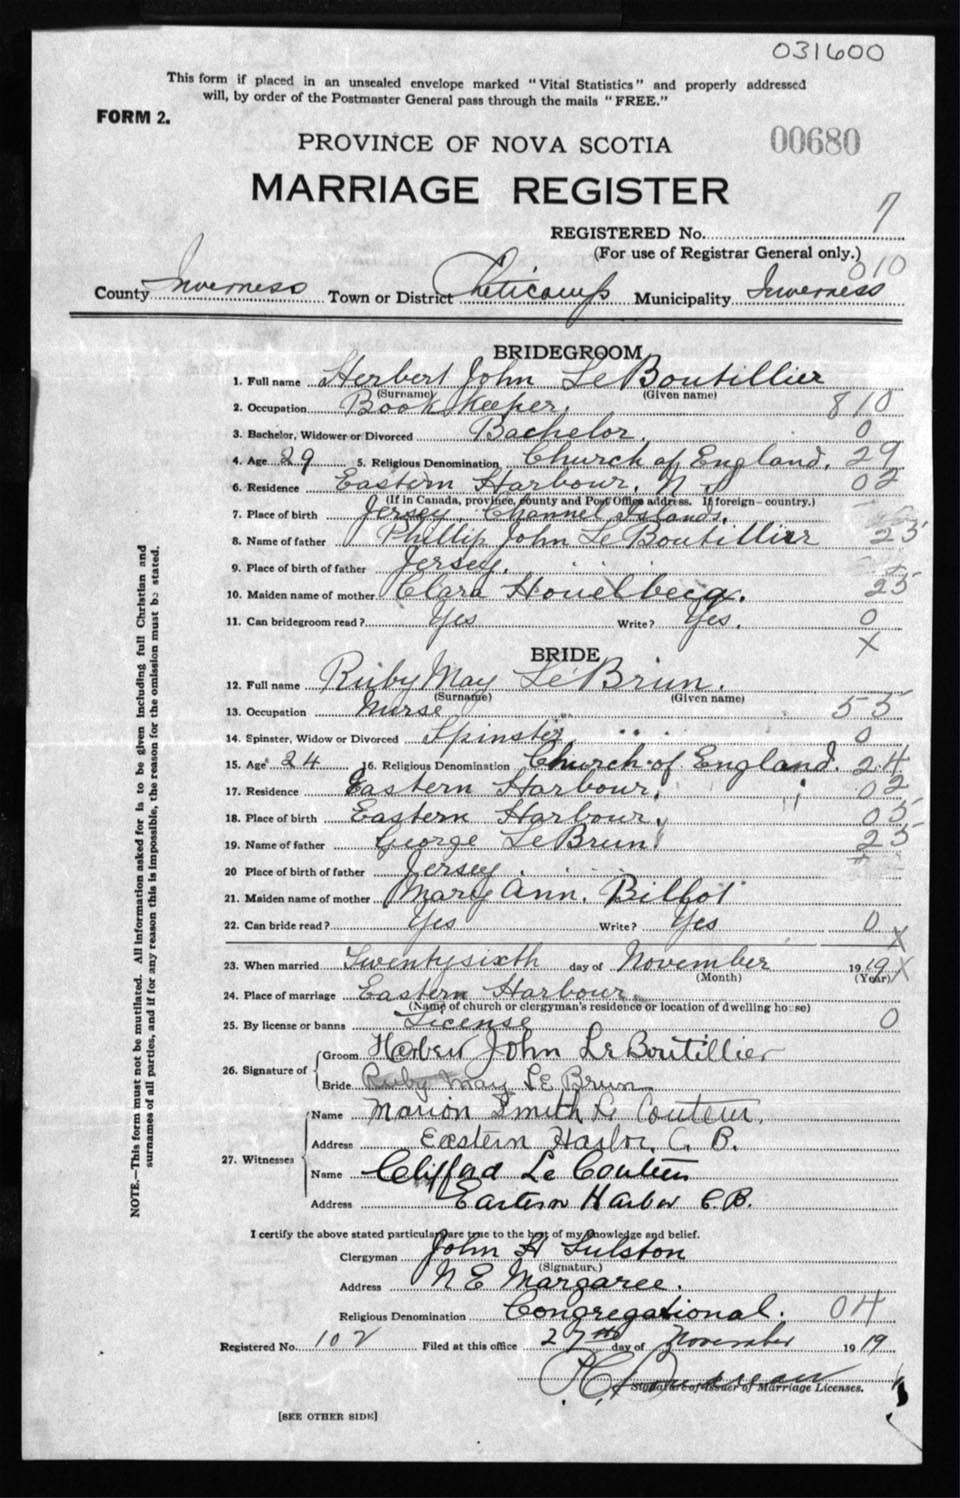 031600
This form if placed in an unsealed envelope marked "Vital Statistics" and properly addressed
will, by order of the Postmaster General pass through the mails "FREE."
FORM 2.
PROVINCE OF NOVA SCOTIA
00680
MARRIAGE REGISTER
REGISTERED No. 7
(For use of Registrar General only.)
010
County Inverness Town or District Cheticamp Municipality Inverness
BRIDEGROOM
1. Full name Herbert John LeBoutillier
(Surname) (Given name)
2. Occupation Book Keeper. 810
3. Bachelor, Widower or Divorced Bachelor. 0
4. Age 29 5. Religious Denomination Church of England. 29
6. Residence Eastern Harbour, N.S 02
(If in Canada, province, county and Post Office address. If foreign- country.)
7. Place of birth Jersey, Channel Islands.
8. Name of father Phillip John LeBoutillier 25
9. Place of birth of father Jersey.
10. Maiden name of mother Clara 25
11. Can bridegroom read? Yes Write? Yes. 0
X
BRIDE
12. Full name Ruby May LeBrun.
(Surname) (Given name)
13. Occupation Nurse 55
14. Spinster, Widow or Divorced Spinster 0
15. Age 24 16. Religious Denomination Church of England. 24
17. Residence Eastern Harbour. 02
18. Place of birth Eastern Harbour. 05
19. Name of father George LeBrun 25
20 Place of birth of father Jersey.
21. Maiden name of mother Mary Ann.
22. Can bride read? Yes Write? Yes 0 X
23. When married Twentysixth day of November 1919 X
(Month) (Year)
24. Place of marriage Eastern Harbour
(Name of church or clergyman's residence or location of dwelling house)
25. By license or banns License 0
26. Signature of Groom Herbert John LeBoutillier
Bride Ruby May LeBrun
27. Witnesses Name Marion Smith Le Couteur
Address Eastern Harbor, C. B.
Name Clifford Le Couteur
Address Eastern Harbor C.B.
I certify the above stated particulars are true to the best of my knowledge and belief.
Clergyman John H
(Signature)
Address N E Margaree.
Religious Denomination Congregational. 04
Registered No. 102 Filed at this office 27th day of November 1919
Signature of Issuer of Marriage Licenses.
[SEE OTHER SIDE]
NOTE.—This form must not be mutilated. All information asked for is to be given including full Christian and
surnames of all parties, and if for any reason this is impossible, the reason for the omission must be stated.